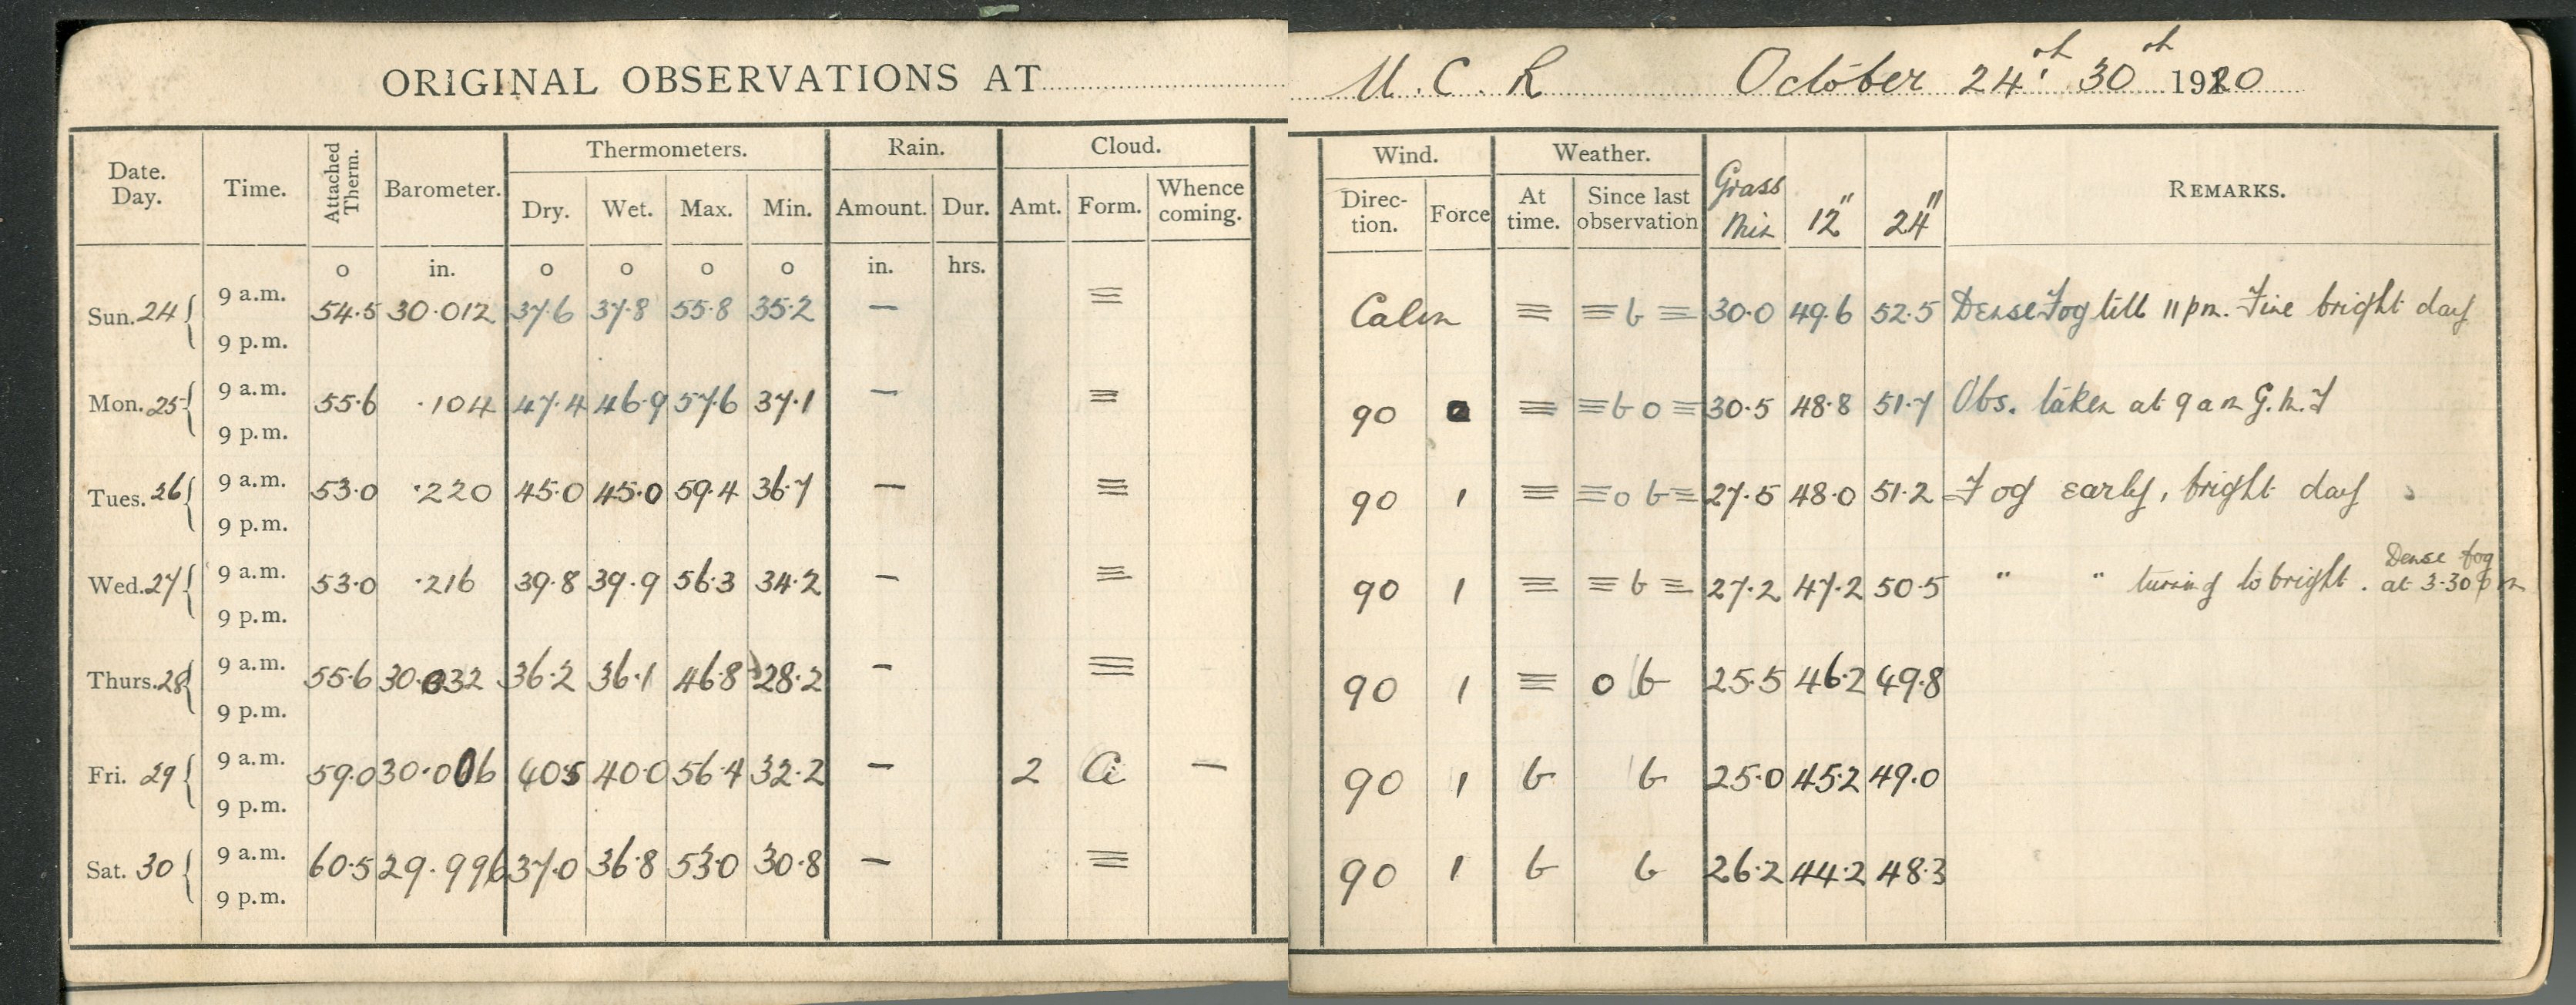 ORIGINAL OBSERVATIONS AT U.C.R October 24th 30th 1920
Date. Day. Time. Attached Therm. Barometer. Thermometers. Rain. Cloud. Wind. Weather. Grass Min 12" 24" REMARKS.
Dry. Wet. Max. Min. Amount. Dur. Amt. Form. Whence coming. Direc- tion. Force At time. Since last observation
o in. o o o o in. hrs.
Sun. 24 { 9 a.m. 54.5 30.012 37.6 37.8 55.8 35.2 — ≡ Calm ≡ ≡ b ≡ 30.0 49.6 52.5 Dense Fog till 11 pm. Fine bright day
9 p.m.
Mon. 25 { 9 a.m. 55.6 .104 47.4 46.9 57.6 37.1 — ≡ 90 ≡ ≡ b o ≡ 30.5 48.8 51.7 Obs. taken at 9 am G.M.T
9 p.m.
Tues. 26 { 9 a.m. 53.0 .220 45.0 45.0 59.4 36.7 — ≡ 90 1 ≡ ≡ o b ≡ 27.5 48.0 51.2 Fog early, bright day
9 p.m.
Wed. 27 { 9 a.m. 53.0 .216 39.8 39.9 56.3 34.2 — ≡ 90 1 ≡ ≡ b ≡ 27.2 47.2 50.5 " " turing to bright. Dense fog at 3-30 pm
9 p.m.
Thurs. 28 { 9 a.m. 55.6 30.032 36.2 36.1 46.8 28.2 — ≡ 90 1 ≡ o b 25.5 46.2 49.8
9 p.m.
Fri. 29 { 9 a.m. 59.0 30.006 40.5 40.0 56.4 32.2 — 2 Ci — 90 1 b b 25.0 45.2 49.0
9 p.m.
Sat. 30 { 9 a.m. 60.5 29.996 37.0 36.8 53.0 30.8 — ≡ 90 1 b b 26.2 44.2 48.3
9 p.m.